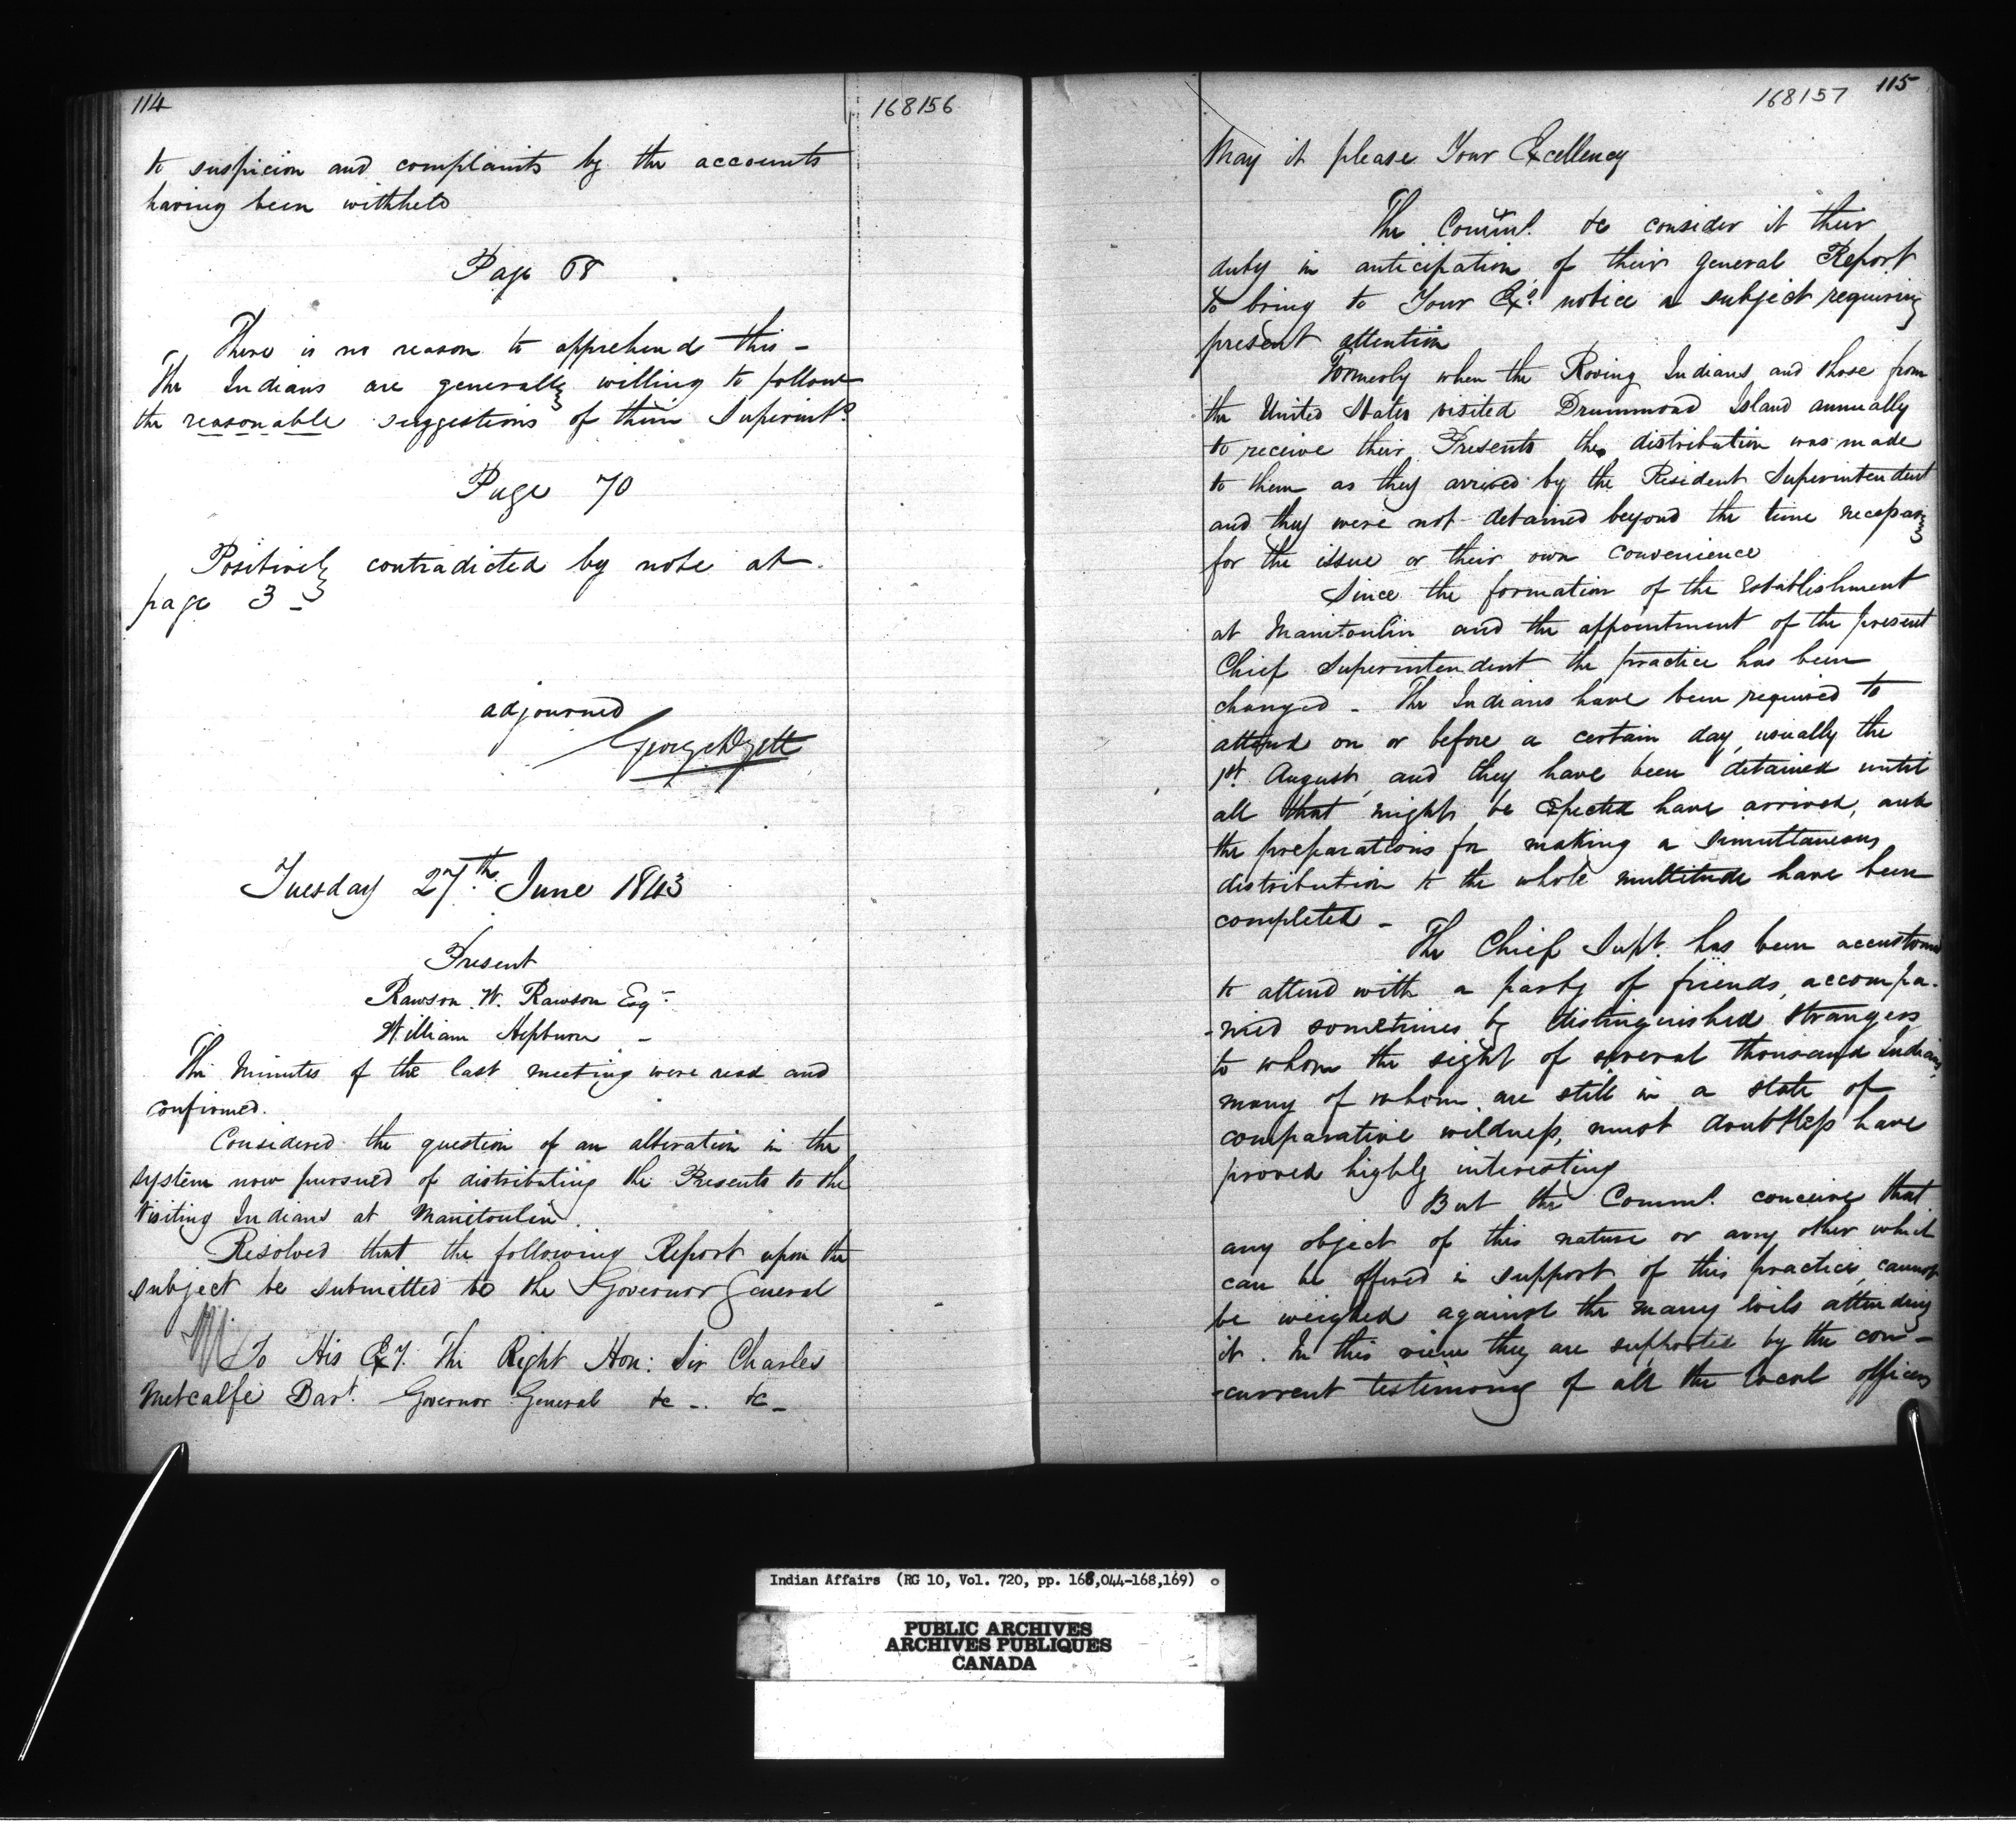 114
168156
to suspicion and complaints by the accounts
having been withheld
Page 68
There is no reason to apprehend this –
The Indians are generally willing to follow
the reasonable suggestions of their Superint.
Page 70
Positively contradicted by note at
page 3 –
adjourned
Tuesday 27th June 1843
Present
Rawson W. Rawson Esqr
William Hepburn –
The Minutes of the last meeting were read and
confirmed.
Considered the question of an alteration in the
system now pursued of distributing the Presents to the
Visiting Indians at Manitoulin.
Resolved that the following Report upon the
subject be submitted to the Governor General
To His Exy. The Right Hon: Sir Charles
Metcalfe Bart. Governor General &c – &c –
168157 115
May it please Your Excellency
The Commrs. &c consider it their
duty in anticipation of their general Report
to bring to Your Exs. notice a subject requiring
present attention
Formerly when the Roving Indians and those from
the United States visited Drummond Island annually
to receive their Presents the distribution was made
to them as they arrived by the Resident Superintendent
and they were not detained beyond the time necessary
for the issue or their own convenience
Since the formation of the Establishment
at Manitoulin and the appointment of the present
Chief Superintendent the practice has been
changed – The Indians have been required to
attend on or before a certain day, usually the
1st. August, and they have been detained until
all that might be expected have arrived, and
the preparations for making a simultaneous
distribution to the whole multitude have been
completed –
The Chief Supt. has been accustomed
to attend with a party of friends, accompa-
-nied sometimes by distinguished strangers
to whom the sight of several thousand Indians,
many of whom are still in a state of
comparative wildness, must doubtless have
proved highly interesting
But the Commrs. conceive that
any object of this nature or any other which
can be offered in support of this practice, cannot
be weighed against the many evils attending
it. In this view they are supported by the con-
-current testimony of all the local officers
Indian Affairs (RG 10, Vol. 720, pp. 168,044-168,169)
PUBLIC ARCHIVES
ARCHIVES PUBLIQUES
CANADA